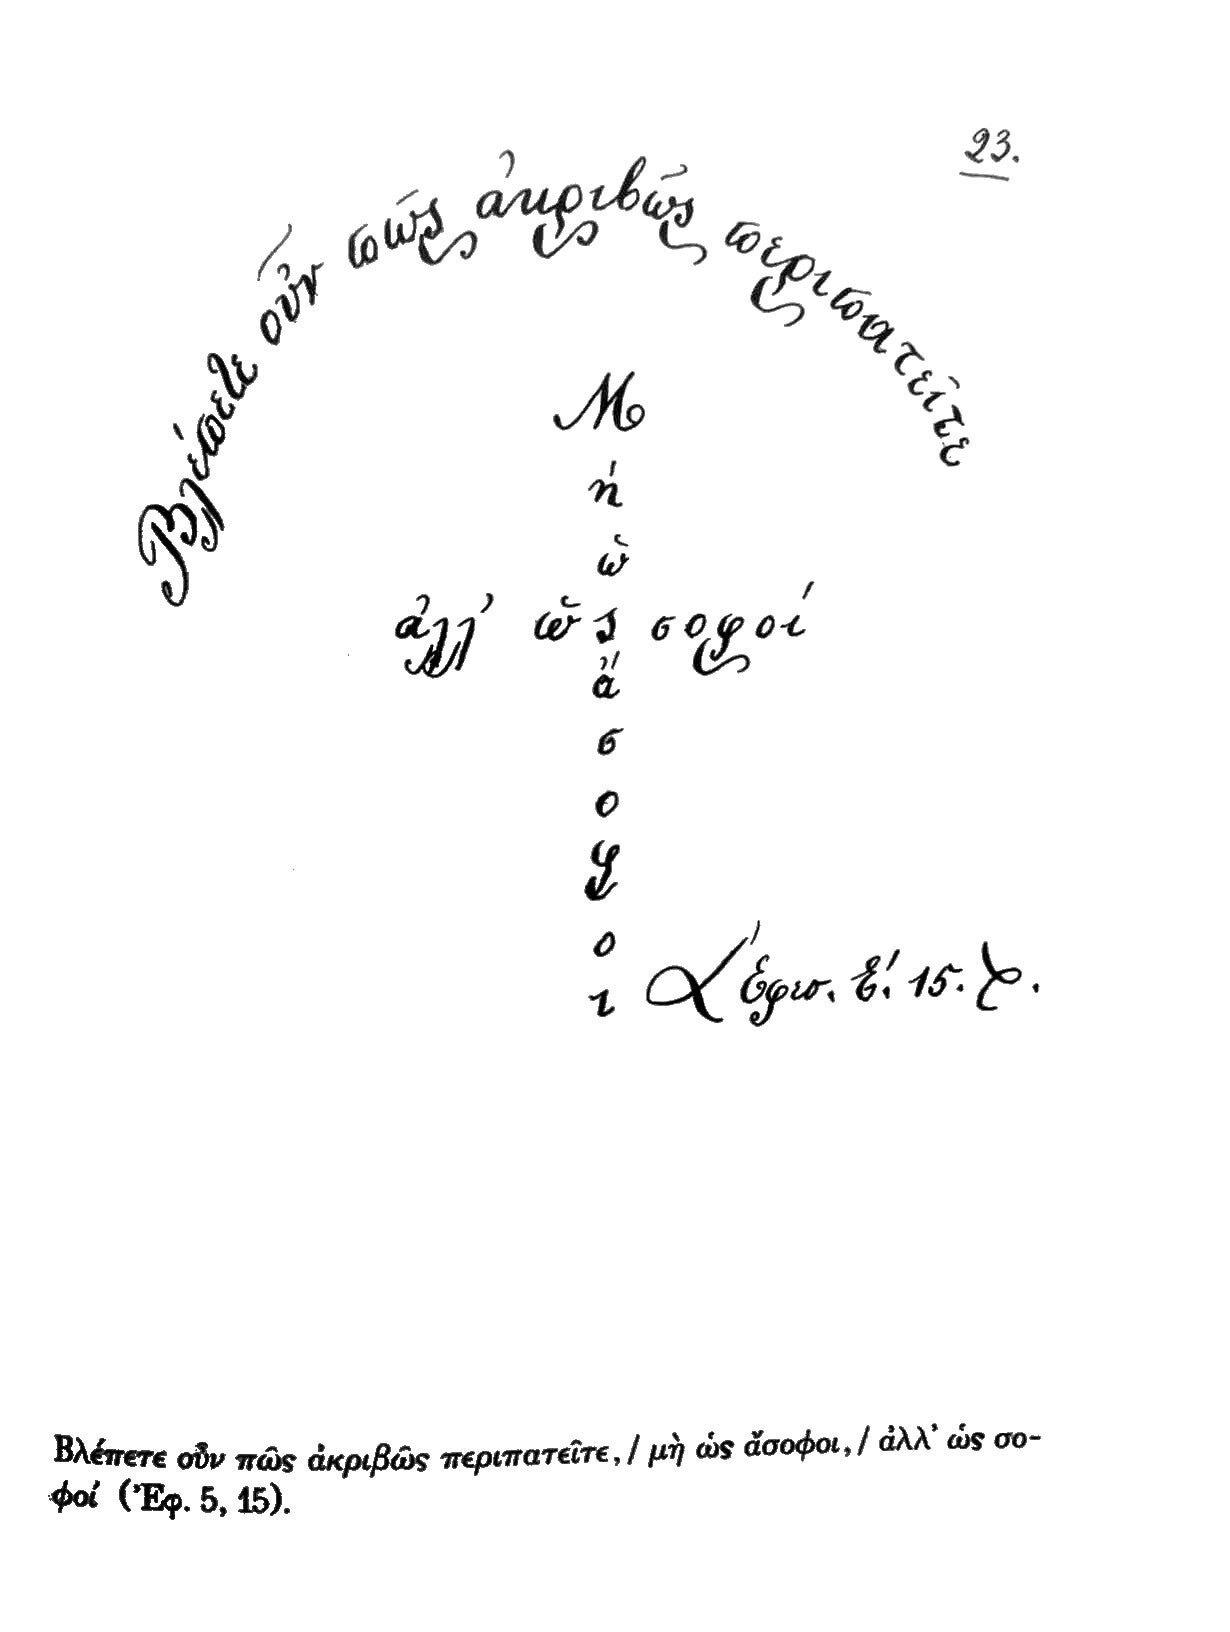 23.
Βλέπετε οὖν πῶς ἀκριβῶς περιπατεῖτε
Μή ὡς ἄσοφοι
ἀλλ’ ὡς σοφοί
Ἐφεσ. Ε΄. 15.
Βλέπετε οὖν πῶς ἀκριβῶς περιπατεῖτε, / μὴ ὡς ἄσοφοι, / ἀλλ’ ὡς σο-
φοί (Ἐφ. 5, 15).